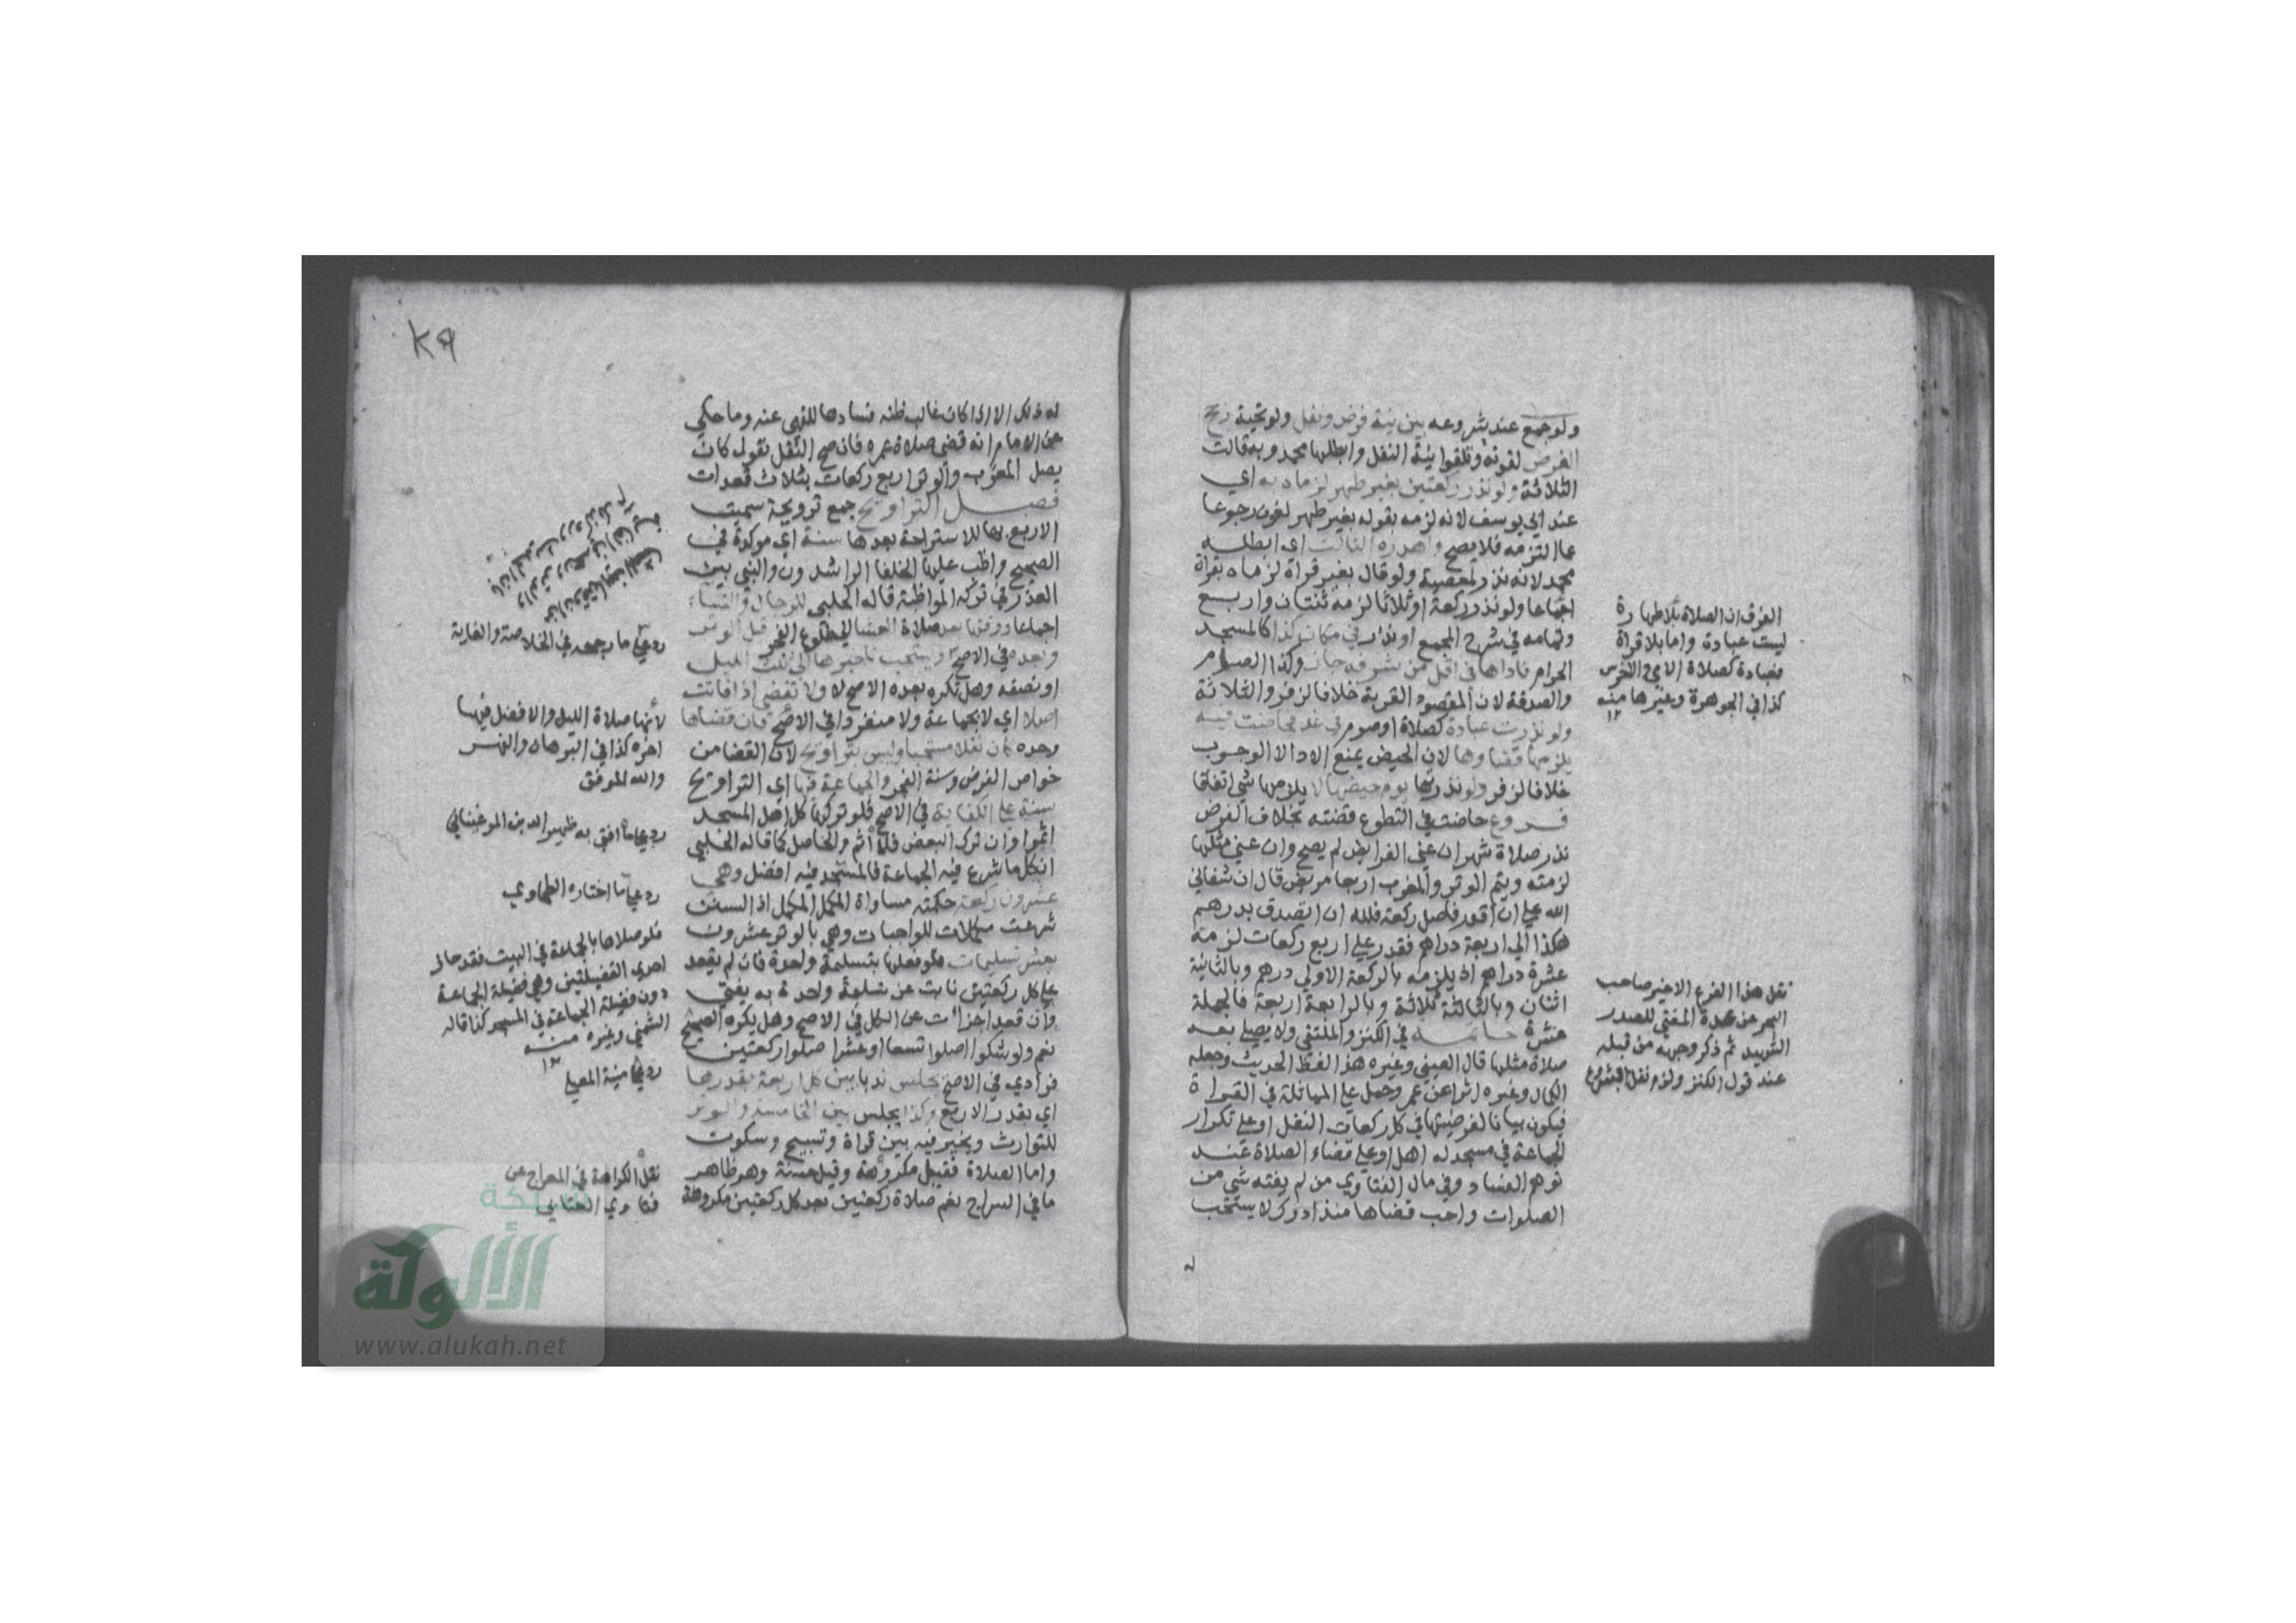 ولو جمع عند شروعه بين نية فرض ونفل ولو تحية رجح
الفرض لقوته وتلغوا نية النفل وابطلها محمد وبه قالت
الثلاثة ولو نذر ركعتين بغير طهر لزماه به اي
عند ابي يوسف لانه لزمه بقوله بغير طهر لغوا رجوعا
عما التزمه فلا يصح واهدره الثالث اي ابطله
محمد لانه نذر لمعصية ولو قال بغير قراة لزماه بقراة
اجماعا ولو نذر ركعة او ثلاثا لزمه ثنتان واربع
وتمامه في شرح المجمع او نذر في مكان كذا كالمسجد
الحرام فاداها في اقل من شرفه جاز وكذا الصوم
والصدقة لان المقصود القربة خلافا لزفر والثلاثة
ولو نذرت عبادة كصلاة او صوم في غد فحاضت فيه
يلزمها قضاوها لان الحيض يمنع الادا لا الوجوب
خلافا لزفر ولو نذرتها يوم حيضها لا يلزمها شي اتفاقا
فروع حاضت في التطوع قضته بخلاف الفرض
نذر صلاة شهر ان عني الفرايض لم يصح وان عني مثلها
لزمته ويتم الوتر والمغرب اربعا مريض قال ان شفاني
الله علي ان اقدر فاصل ركعة فلله ان اتصدق بدرهم
هكذا الي اربعة دراهم فقدر علي اربع ركعات لزمه
عشرة دراهم اذ يلزمه بالركعة الاولي درهم وبالثانية
اثنان وبالثالثة ثلاثة وبالرابعة اربعة فالجملة
عشرة خاتمة في الكنز والملتقي ولا يصلي بعد
صلاة مثلها قال العيني وغيره هذا لفظ الحديث وجعله
الكمال وغيره اثرا عن عمر وحمل علي المماثلة في القراة
فيكون بيانا لفرضيتها في كل ركعات النفل او علي تكرار
الجماعة في مسجد له اهل او علي قضاء الصلاة عند
توهم الفساد وفي مال الفتاوي من لم يفته شي من
الصلوات واحب قضاها منذ ادرك لا يستحب
له
الفرق ان الصلاة بلا طهارة
ليست عبادة واما بلا قراة
فعبادة كصلاة الامي والاخرس
كذا في الجوهرة وغيرها منه
١٢
نقل هذا الفرع الاخير صاحب
البحر عن عمدة المفتي للصدر
الشهيد ثم ذكر وجهه من قبله
عند قول الكنز ولزم نفل بشروع
٤٩
له ذلك الا اذا كان غالب ظنه فسادها للنهي عنه وما حكي
عن الامام انه قضي صلاة عمره فان صح النقل نقول كان
يصل المغرب والوتر اربع ركعات بثلاث قعدات
فصل التراويح جمع ترويحة سميت
الاربع بها للاستراحة بعدها سنة اي موكدة في
الصحيح واظب عليها الخلفا الراشدون والنبي بين
العذر في تركه المواظبة قاله الحلبي للرجال والنساء
اجماعا ووقتها بعد صلاة العشا الي طلوع الفجر قبل الوتر
وبعده في الاصح ويستحب تاخيرها الي ثلث الليل
او نصفه وهل تكره بعده الاصح لا ولا تقضي اذا فاتت
اصلا اي لا بجماعة ولا منفردا في الاصح فان قضاها
وحده كان نفلا مستحبا وليس بتراويح لان القضا من
خواص الفرض وسنة الفجر والجماعة فيها اي التراويح
سنة علي الكفاية في الاصح فلو تركها كل اهل المسجد
اثموا وان ترك البعض فلا اثم والحاصل كما قاله الحلبي
ان كل ما شرع فيه الجماعة فالمسجد فيه افضل وهي
عشرون ركعة حكمته مساواة المكمل المكمل اذ السنن
شرعت مكملات للواجبات وهي بالوتر عشرون
بعشر تسليمات فلو فعلها بتسليمة واحدة فان لم يقعد
علي كل ركعتين نابت عن تسليمة واحدة به يفتي
وان قعد اجزات عن الكل في الاصح وهل يكره الصحيح
نعم ولو شكوا اصلوا تسعا او عشرا صلوا ركعتين
فرادي في الاصح يجلس ندبا بين كل اربعة بقدرها
اي بقدر الاربع وكذا يجلس بين الخامسة والوتر
للتوارث ويخير فيه بين قراة وتسبيح وسكوت
واما الصلاة فقيل مكروهة وقيل حسنة وهو ظاهر
ما في السراج نعم صلاة ركعتين بعد كل ركعتين مكروهة
رد علي ما رجحه في الخلاصة والغاية
لأنها صلاة الليل والافضل فيها
اخره كذا في البرهان والنهر
والله الموفق
رد علي ما افتي به ظهير الدين المرغيناني
رد علي ما اختاره الطحاوي
فلو صلاها بالجماعة في البيت فقد حاز
احدي الفضيلتين وهي فضيلة الجماعة
دون فضيلة الجماعة في المسجد كذا قاله
الشمني وغيره منه
١٢
رد علي منية المصلي
نقل الكراهة في المعراج عن
فتاوي العتابي
شبكة
الألوكة
www.alukah.net